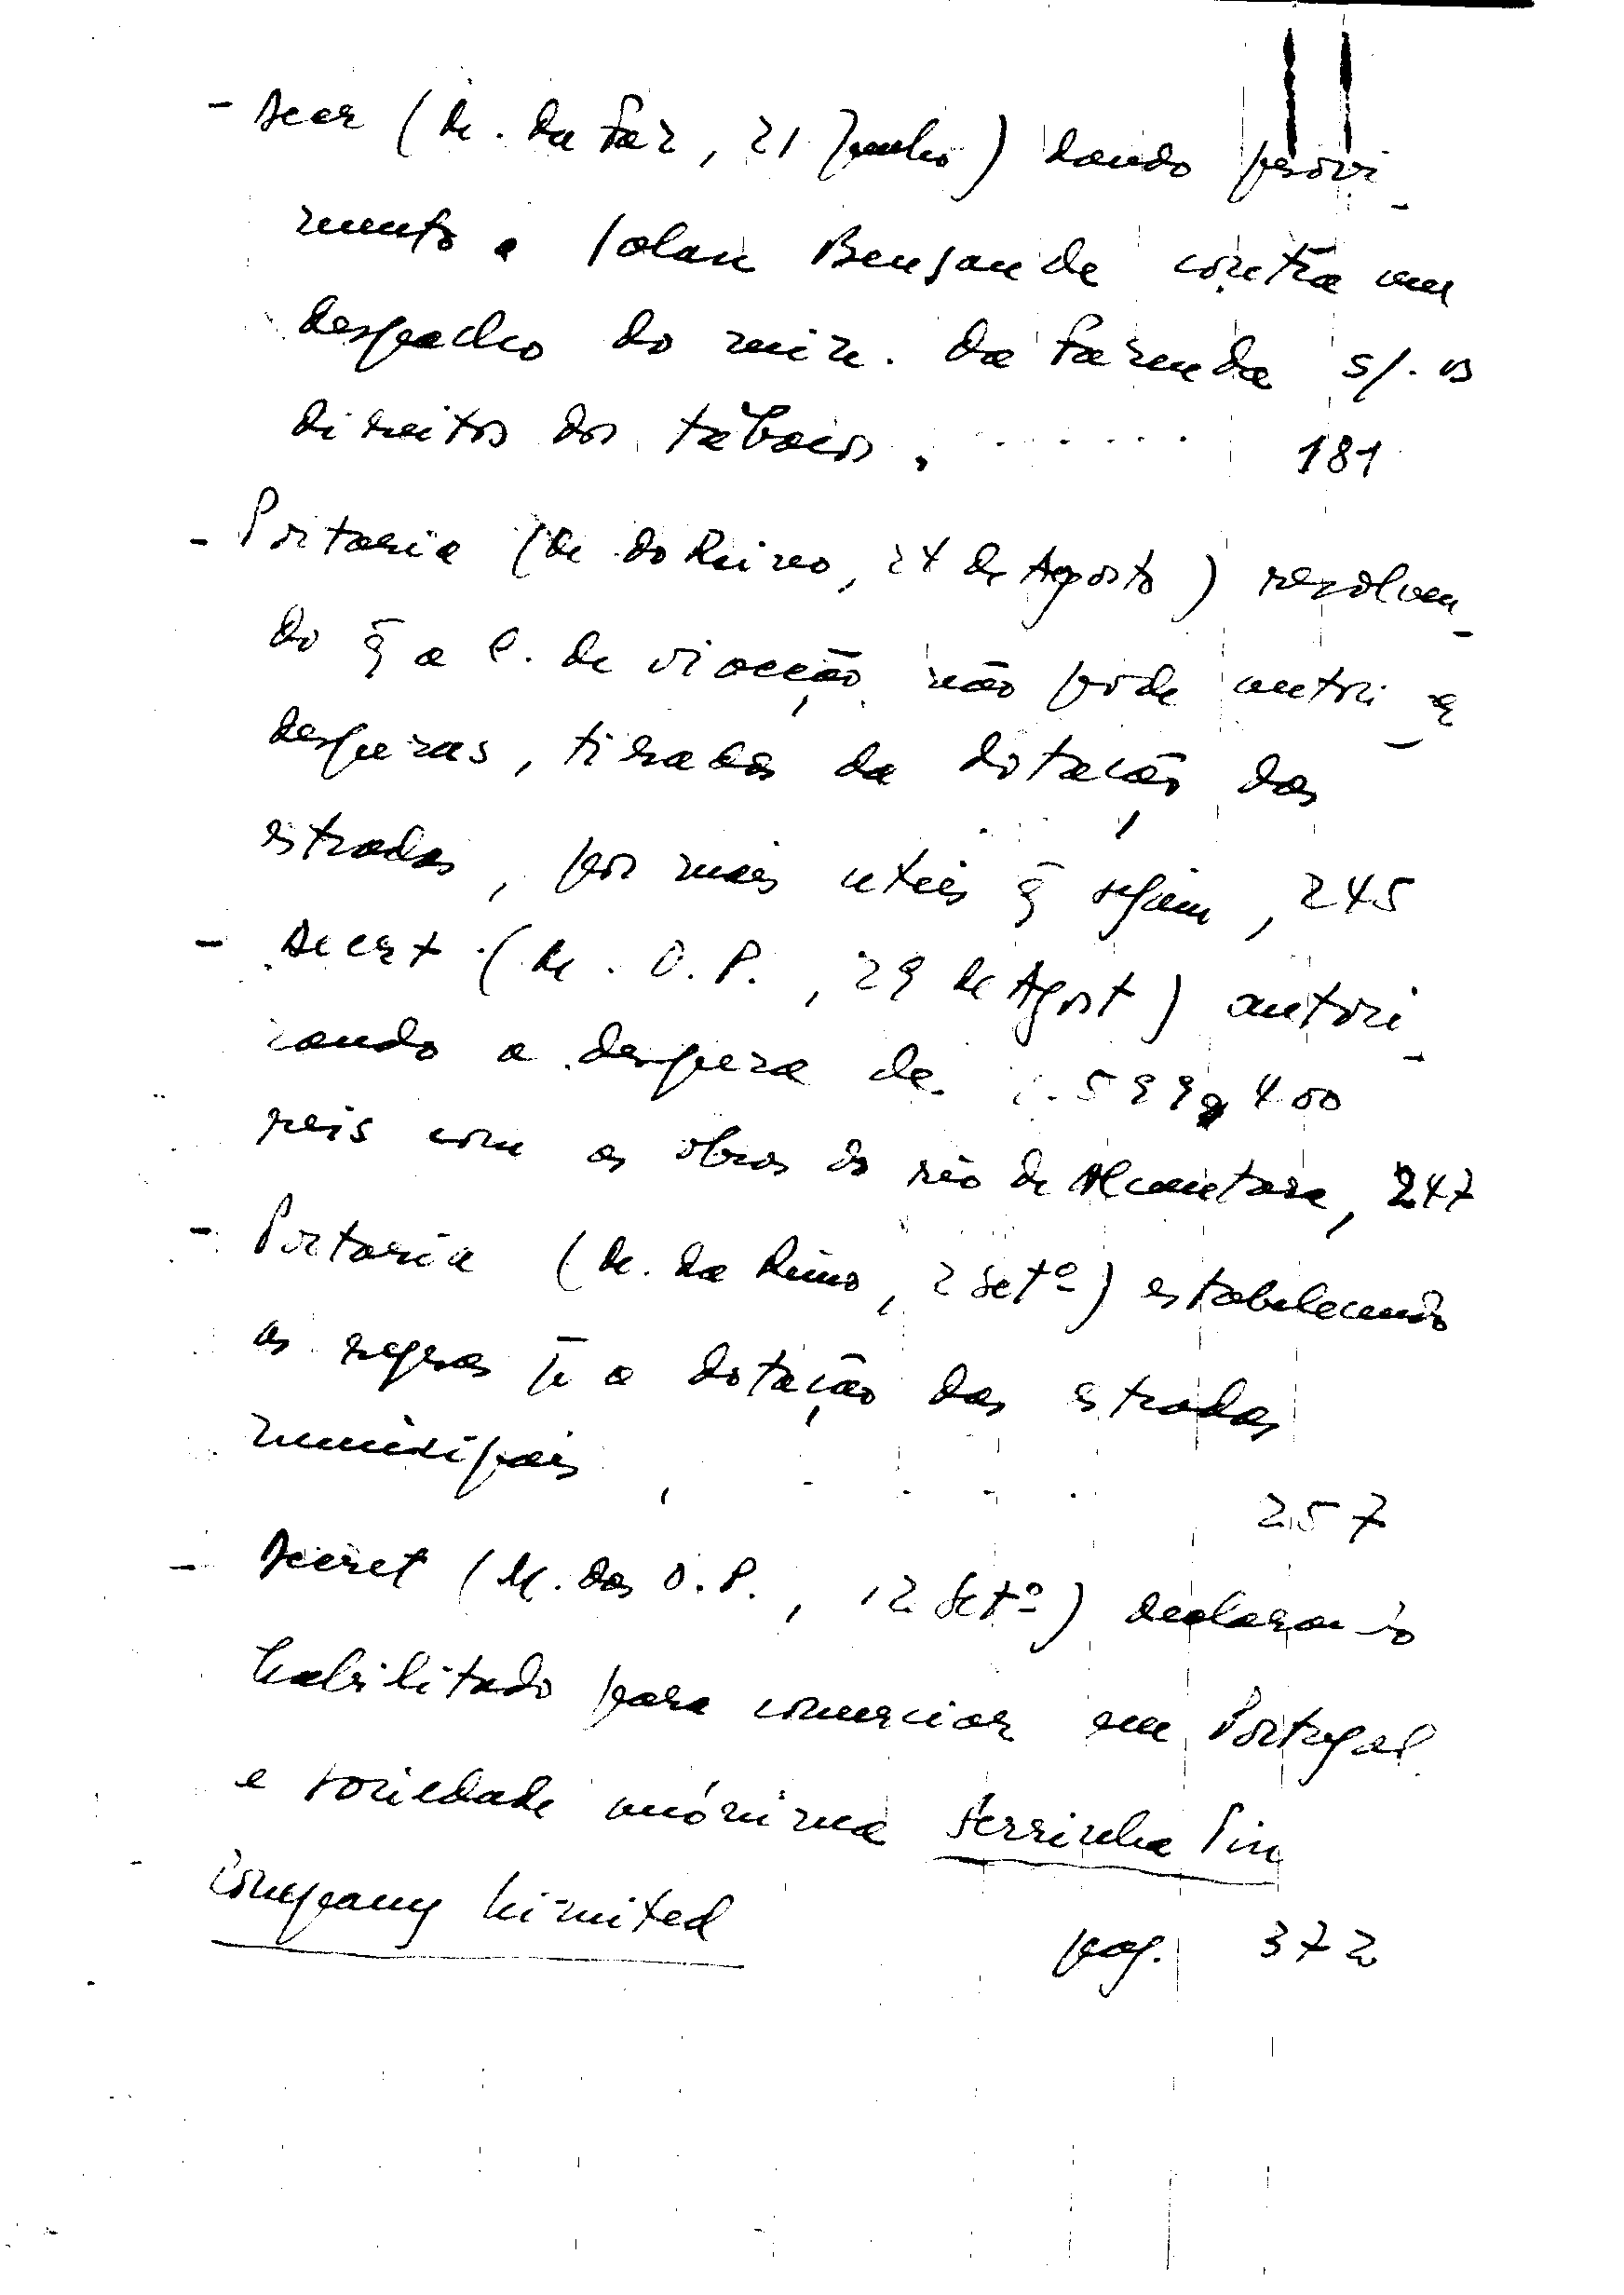 - Decr (M. da Faz, 21 Junho) dando provi-
mento a Bensaude contra um
despacho do min. da Fazenda s/. os
direitos dos tabacos, ...... 181
- Portaria (M. do Reino, 24 de Agosto) resolven-
do q̃ a C. de viacção não pode autori-
despezas, tiradas da dotação das
estradas, por mais uteis q̃ sejam, 245
- Decrt (M. O. P., 29 de Agost) autori-
zando a despeza de 599$400
reis com as obras do rio de Alcantara, 247
- Portaria (M. do Reino, 2 Setº) estabelecendo
as regras p̄ a dotação das estradas
municipais, .... 257
- Decret (M. das O. P., 12 Setº) declarando
habilitado para comerciar em Portugal
a sociedade anónima Serrinha Pin
Company Limited pag. 372